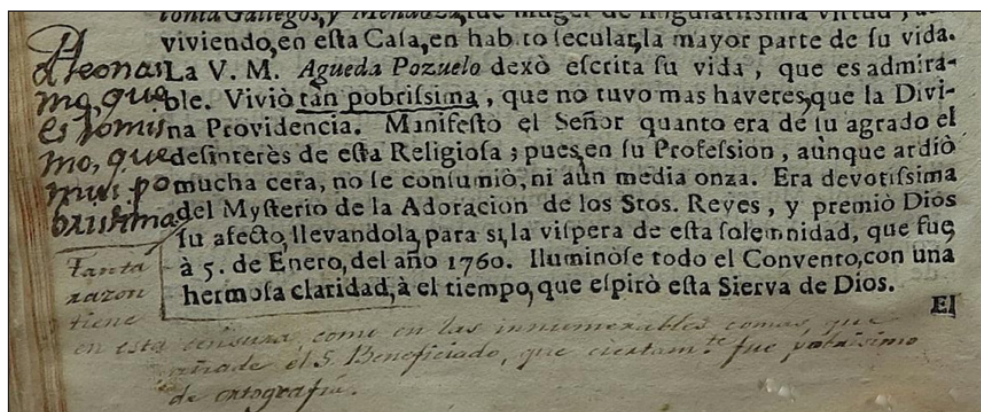 tonia Gallegos, y Mendoza, fue muger de ſingulariſſima virtud,
viviendo, en eſta Caſa, en hab to ſecular, la mayor parte de ſu vida.
La V. M. Agueda Pozuelo dexò eſcrita ſu vida, que es admira-
ble. Viviò tan pobriſſima, que no tuvo mas haveres, que la Divi-
na Providencia. Manifeſtò el Señor quanto era de ſu agrado el
deſinterès de eſta Religioſa; pues, en ſu Profeſsion, aùnque ardiò
mucha cera, no ſe conſumiò, ni aùn media onza. Era devotiſſima
del Myſterio de la Adoracion de los Stos. Reyes, y premiò Dios
ſu afecto, llevandola, para sì, la viſpera de eſta ſolemnidad, que fue,
à 5. de Enero, del año 1760. Iluminòſe todo el Convento, con una
hermoſa claridad, à el tiempo, que eſpirò eſta Sierva de Dios.
El
Pleonas
mo, que
es lo mis
mo, que
mui po
brissima.
Tanta
razon
tiene
en esta censura, como en las innumerables comas, que
añade el S. Beneficiado, que ciertam.te fue pobrisimo
de ortografia.